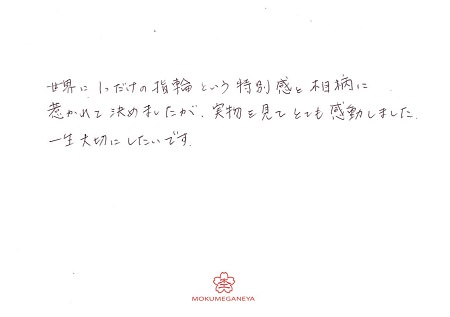 世界に1つだけの指輪という特別感と木目柄に
惹かれて決めましたが、実物を見てとても感動しました.
一生大切にしたいです.
MOKUMEGANEYA